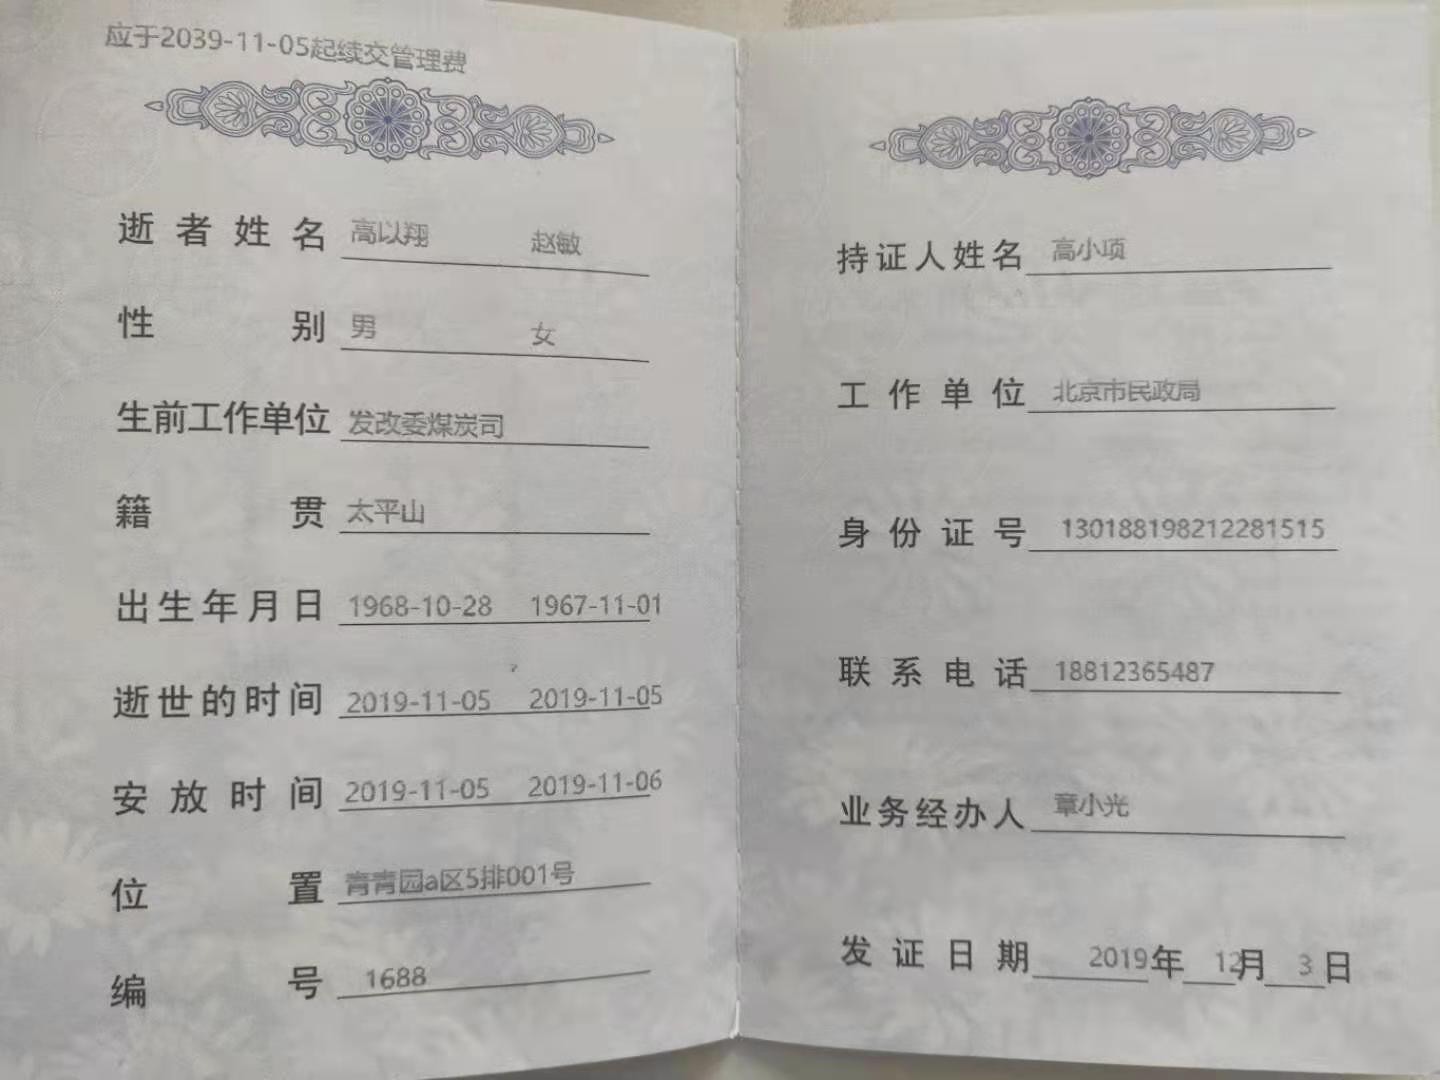 应于2039-11-05起续交管理费
逝者姓名 高以翔 赵敏
性别 男 女
生前工作单位 发改委煤炭司
籍贯 太平山
出生年月日 1968-10-28 1967-11-01
逝世的时间 2019-11-05 2019-11-05
安放时间 2019-11-05 2019-11-06
位置 青青园a区5排001号
编号 1688
持证人姓名 高小项
工作单位 北京市民政局
身份证号 130188198212281515
联系电话 18812365487
业务经办人 章小光
发证日期 2019年 12月 3日